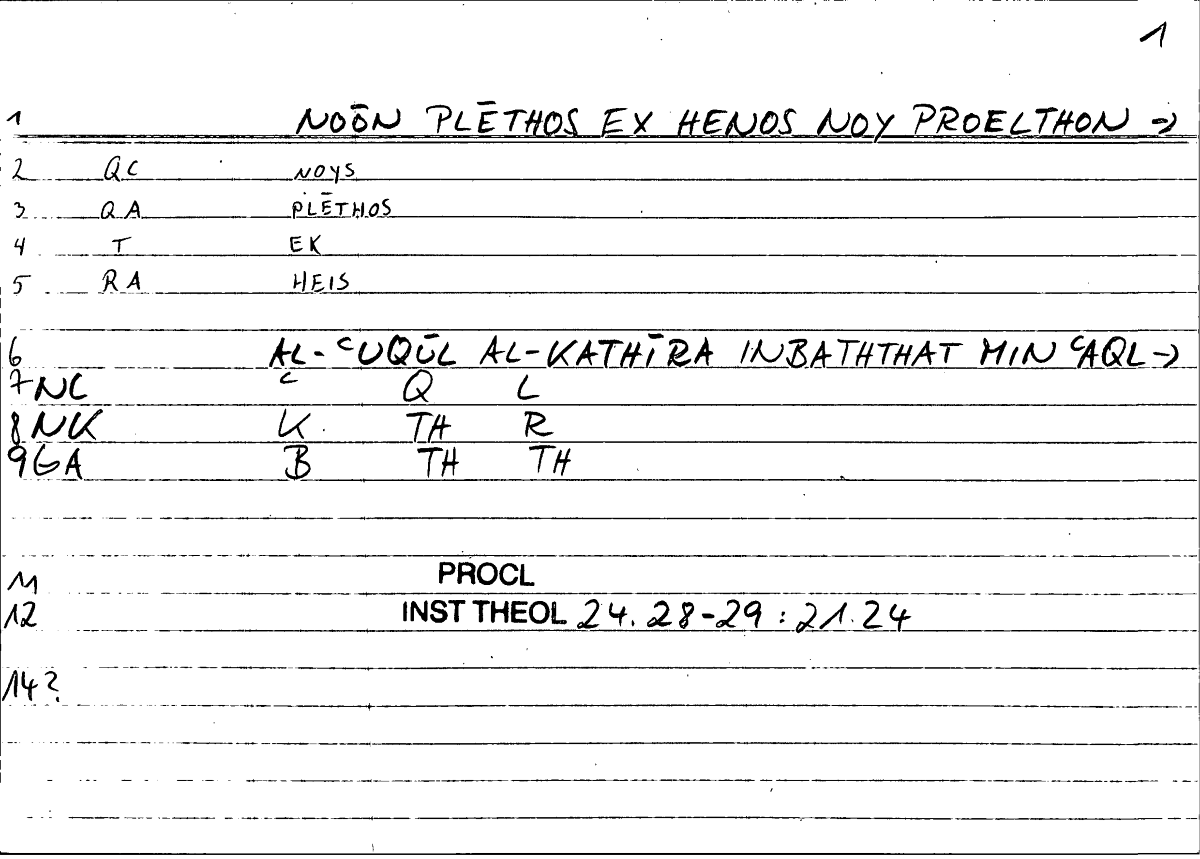 1
1 NOŌN PLĒTHOS EX HENOS NOY PROELTHON →
2 QC NOYS
3 QA PLĒTHOS
4 T EK
5 RA HEIS
6 AL-ᶜUQŪL AL-KATHĪRA INBATHTHAT MIN ᶜAQL →
7 NC ᶜ Q L
8 NK K TH R
9 GA B TH TH
11 PROCL
12 INST THEOL 24.28-29:21.24
14?